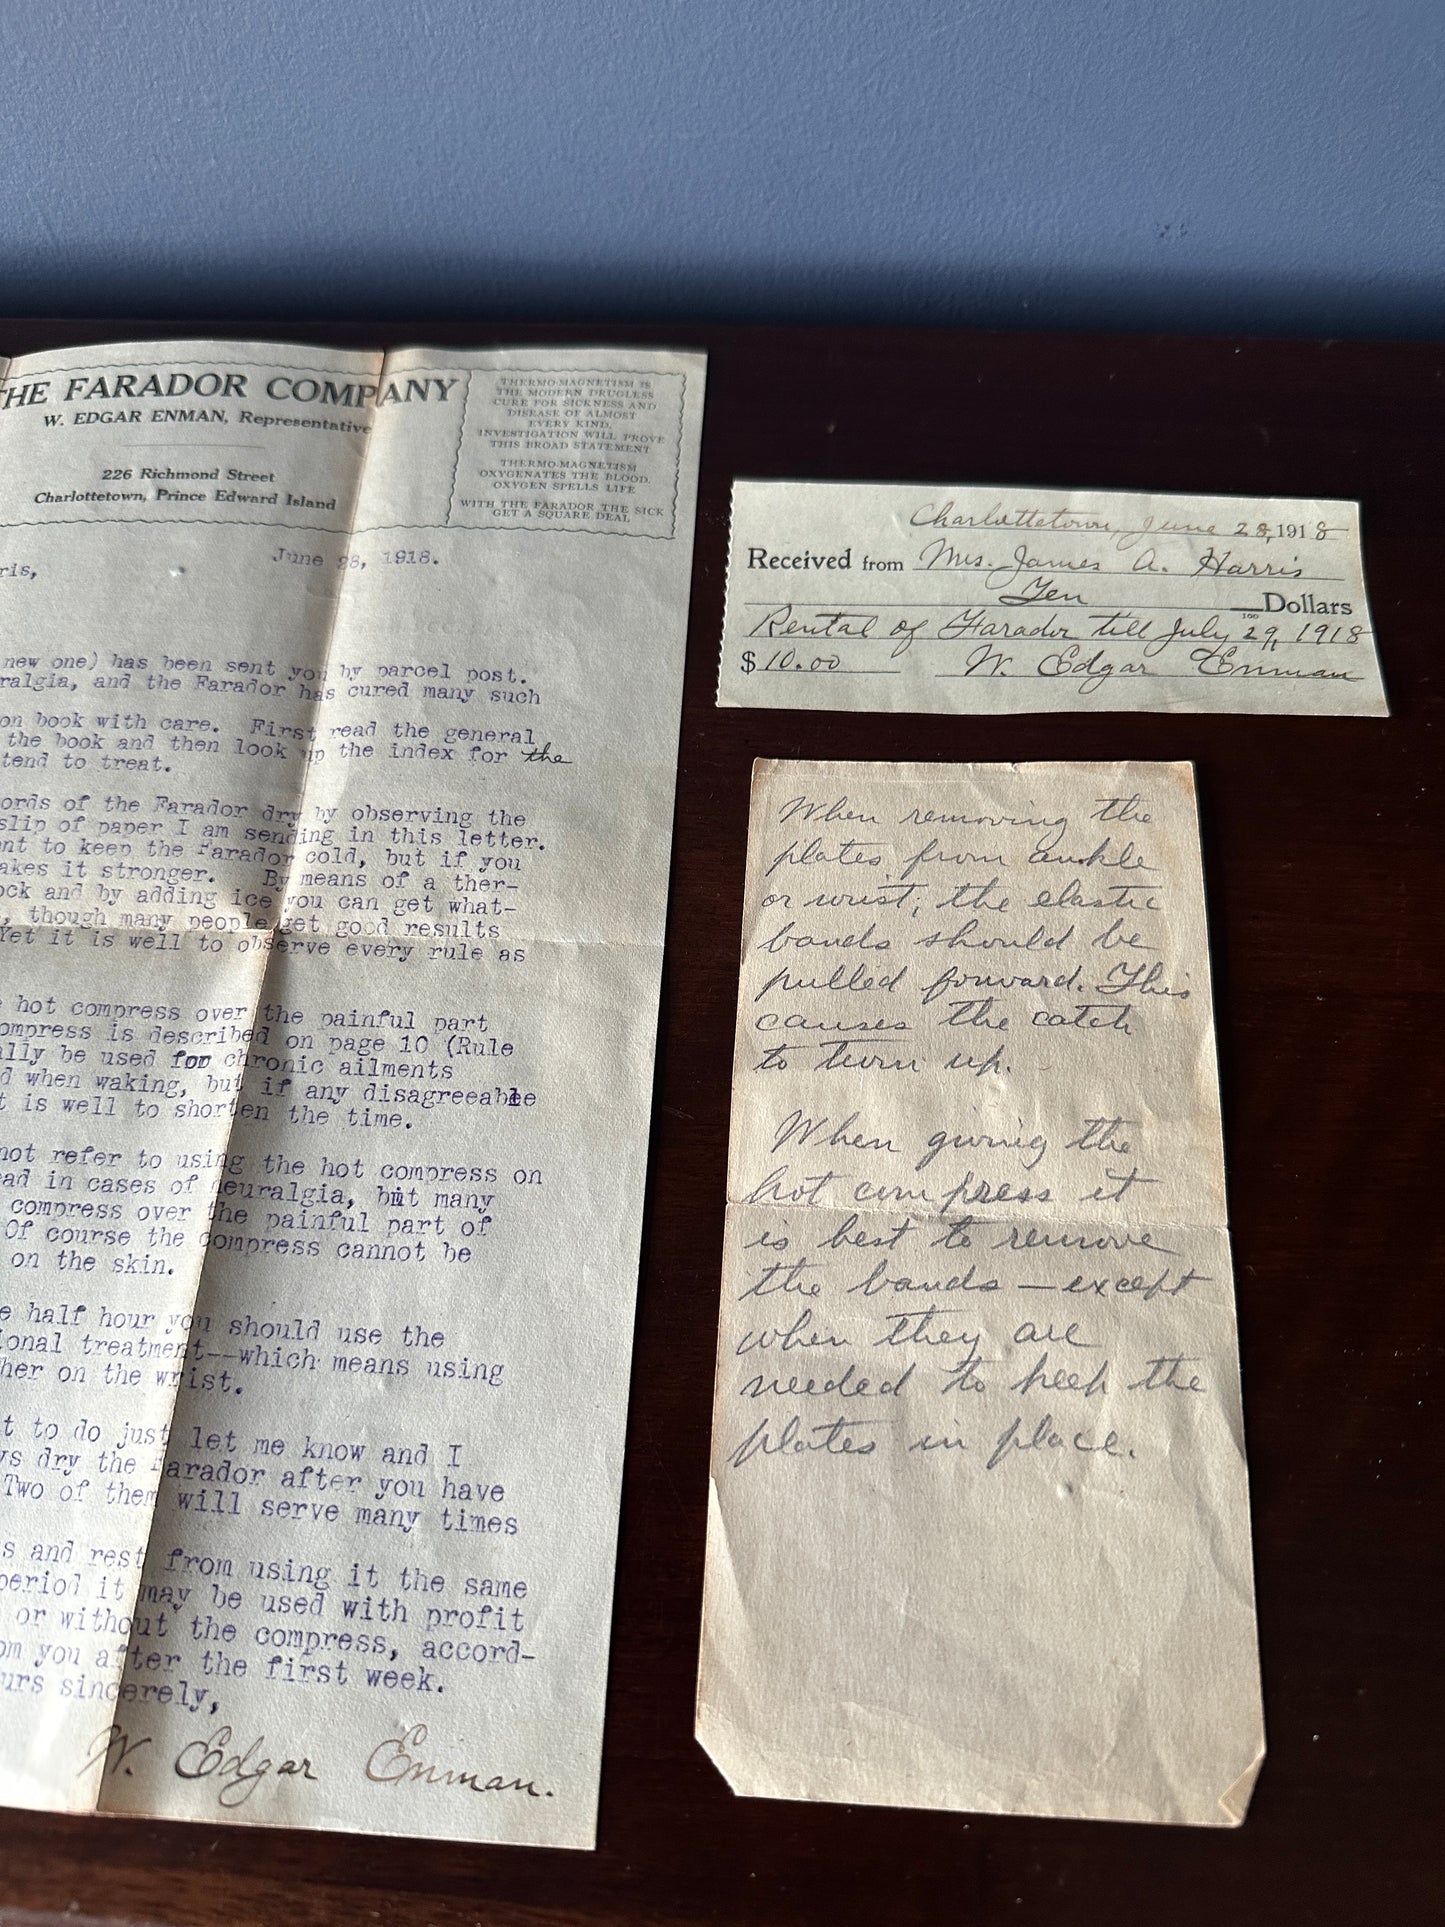 THE FARADOR COMPANY
W. EDGAR ENMAN, Representative
226 Richmond Street
Charlottetown, Prince Edward Island
THERMO-MAGNETISM IS
THE MODERN DRUGLESS
CURE FOR SICKNESS AND
DISEASE OF ALMOST
EVERY KIND.
INVESTIGATION WILL PROVE
THIS BROAD STATEMENT
THERMO-MAGNETISM
OXYGENATES THE BLOOD.
OXYGEN SPELLS LIFE
WITH THE FARADOR THE SICK
GET A SQUARE DEAL
June 28, 1918.
ris,
new one) has been sent you by parcel post.
ralgia, and the Farador has cured many such
on book with care. First read the general
the book and then look up the index for the
tend to treat.
ords of the Farador dry by observing the
slip of paper I am sending in this letter.
nt to keep the Farador cold, but if you
akes it stronger. By means of a ther-
ock and by adding ice you can get what-
, though many people get good results
Yet it is well to observe every rule as
hot compress over the painful part
ompress is described on page 10 (Rule
lly be used for chronic ailments
d when waking, but if any disagreeable
t is well to shorten the time.
not refer to using the hot compress on
ad in cases of neuralgia, but many
compress over the painful part of
Of course the compress cannot be
on the skin.
e half hour you should use the
ional treatment--which means using
her on the wrist.
t to do just let me know and I
ys dry the Farador after you have
Two of them will serve many times
s and rest from using it the same
period it may be used with profit
or without the compress, accord-
om you after the first week.
urs sincerely,
W. Edgar Enman.
Charlottetown, June 28, 1918
Received from Mrs. James A. Harris
Ten 100 Dollars
Rental of Farador till July 29, 1918
$ 10.00 W. Edgar Enman
When removing the
plates from ankle
or wrist, the elastic
bands should be
pulled forward. This
causes the catch
to turn up.
When giving the
hot compress it
is best to remove
the bands — except
when they are
needed to keep the
plates in place.